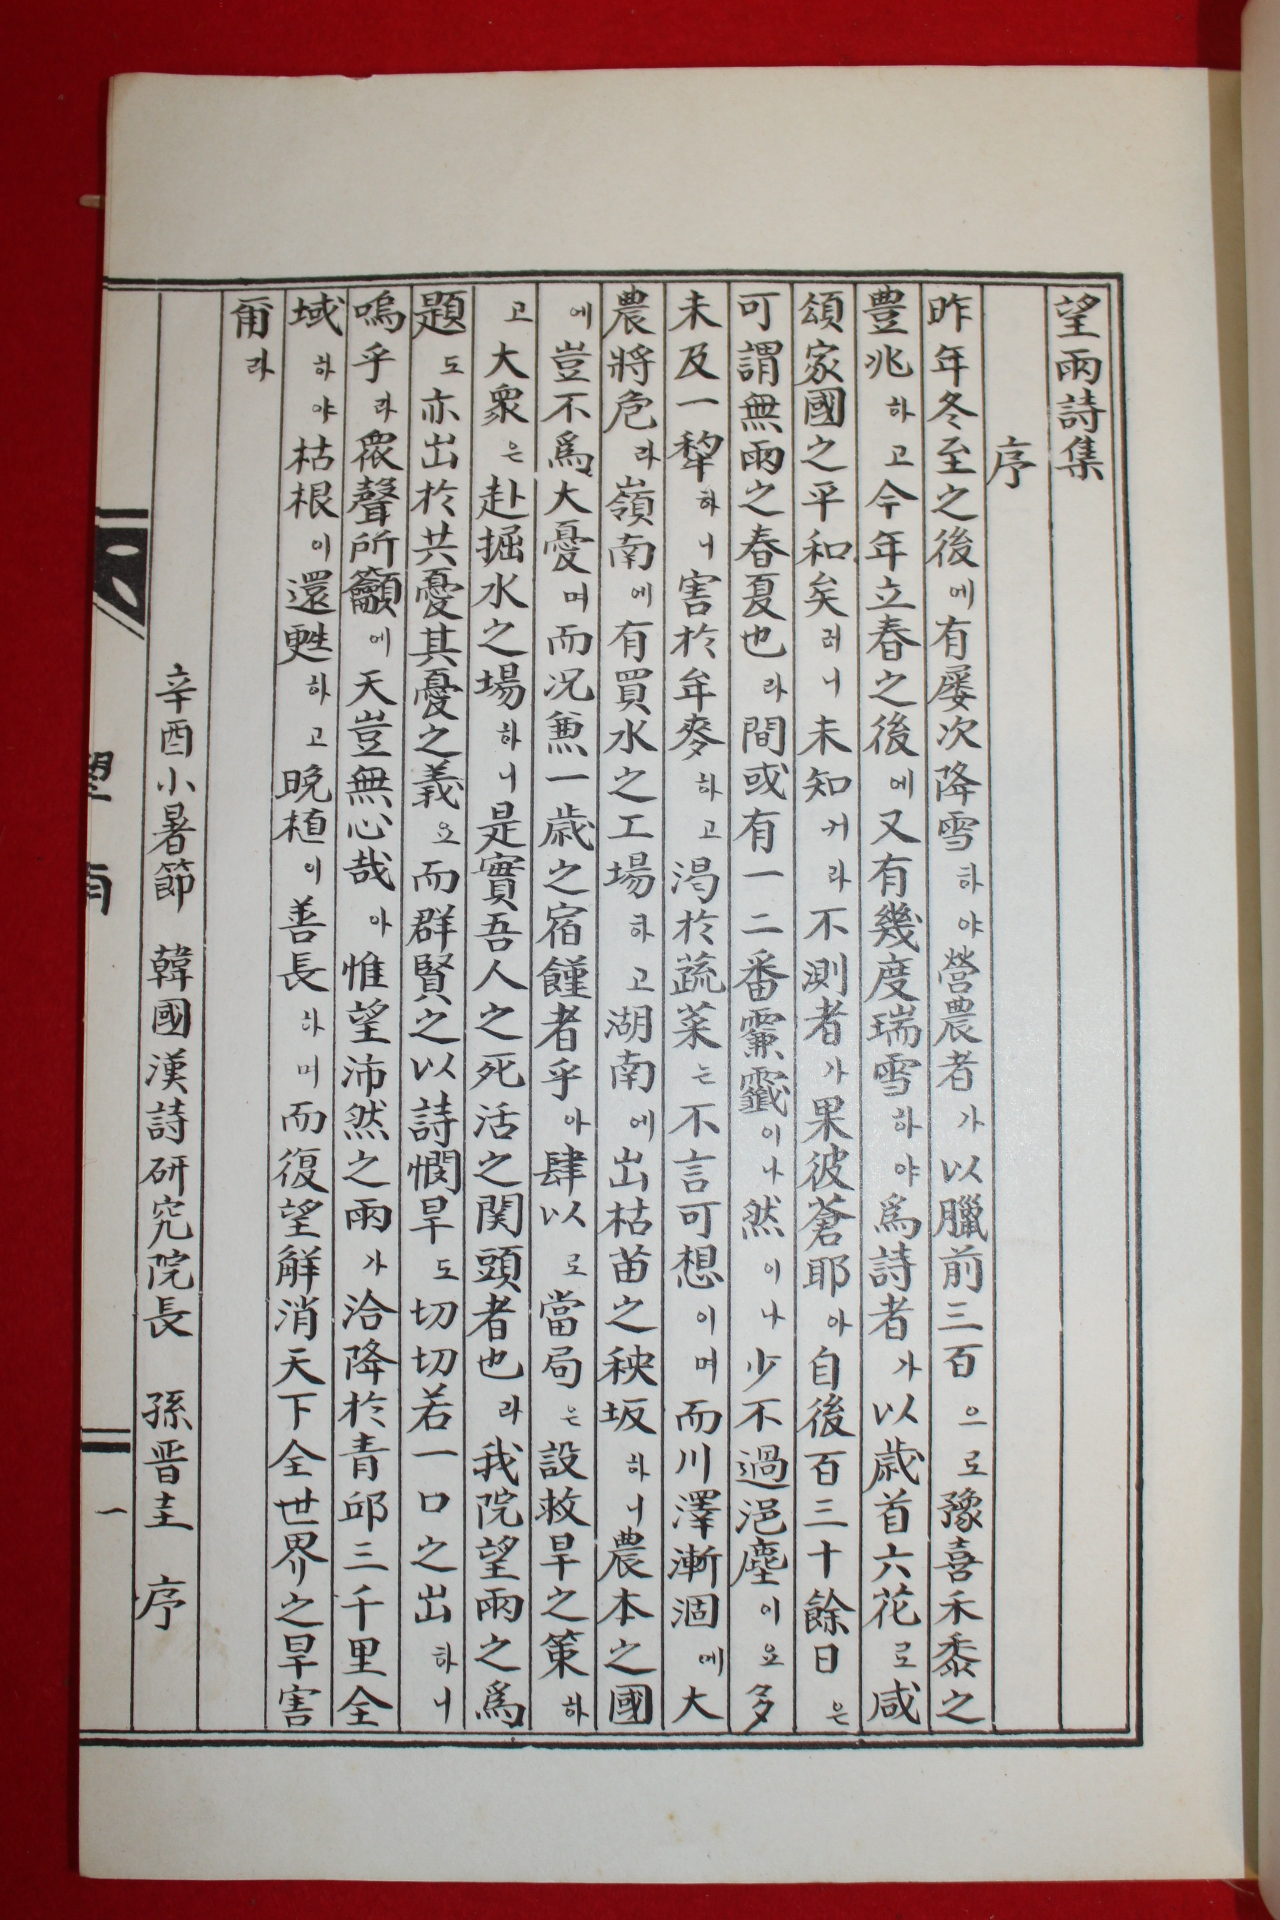 望雨詩集
序
昨年冬至之後에有屢次降雪하야營農者가以臘前三百으로豫喜禾黍之
豊兆하고今年立春之後에又有幾度瑞雪하야爲詩者가以歲首六花로咸
頌家國之平和矣러니未知커라不測者가果彼蒼耶아自後百三十餘日은
可謂無雨之春夏也라間或有一二番霢霂이나然이나少不過浥塵이요多
未及一犂하니害於牟麥하고渴於蔬菜는不言可想이며而川澤漸涸에大
農將危라嶺南에有買水之工場하고湖南에出枯苗之秧坂하니農本之國
에豈不爲大憂며而况兼一歲之宿饉者乎아肆以로當局은設救旱之策하
고大衆은赴掘水之場하니是實吾人之死活之関頭者也라我院望雨之爲
題도亦出於共憂其憂之義요而群賢之以詩憫旱도切切若一口之出하니
嗚乎라衆聲所籲에天豈無心哉아惟望沛然之雨가洽降於青邱三千里全
域하야枯根이還甦하고晩植이善長하며而復望解消天下全世界之旱害
爾라
辛酉小暑節 韓國漢詩研究院長 孫晋圭 序
望雨
一